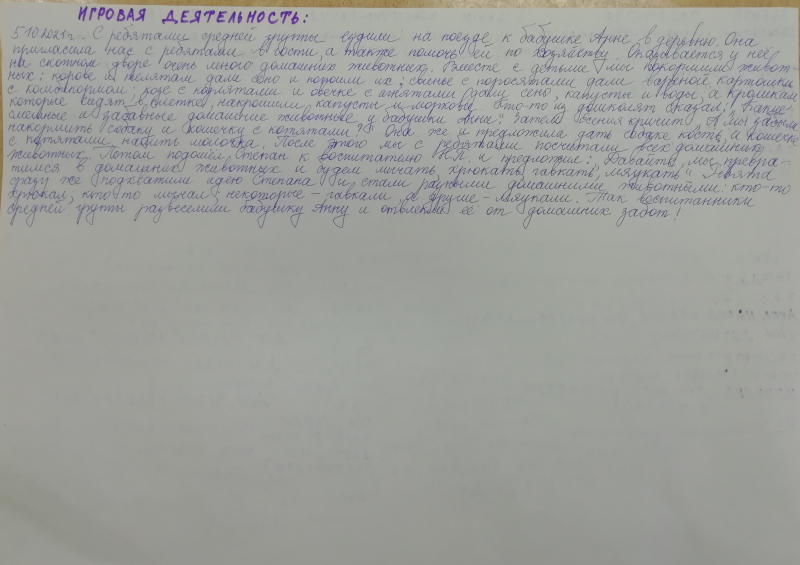 ИГРОВАЯ ДЕЯТЕЛЬНОСТЬ:
5.10.2021г. С ребятами средней группы ездили на поезде к бабушке Анне в деревню. Она
пригласила нас с ребятами в гости, а также помочь ей по хозяйству. Оказывается у неё
на скотном дворе очень много домашних животных. Вместе с детьми мы покормили живот-
ных: корове и телятам дали сено и поили их; свинье с поросятами дали вареной картошки
с комбикормом; козе с козлятами и овечке с ягнятами дали сено, капусты и воды, а кроликам
которые сидят в клетке, накрошили капусты и моркови. Кто-то из двойнят сказал: "Какие
смешные и забавные домашние животные у бабушки Анны". Затем Есения кричит "А мы забыли
накормить собаку и кошечку с котятами?!" Она же и предложила дать собаке кость, а кошечке
с котятами налить молочка. После этого мы с ребятами посчитали всех домашних
животных. Потом подошёл Степан к воспитателю Н.Н. и предложил: "Давайте мы превра-
тимся в домашних животных и будем мычать, хрюкать, гавкать, мяукать". Ребята
сразу же подхватили идею Степана и стали разными домашними животными: кто-то
хрюкал, кто-то мычал, некоторые - гавкали, а другие - мяукали. Так воспитанники
средней группы развеселили бабушку Анну и отвлекли её от домашних забот!